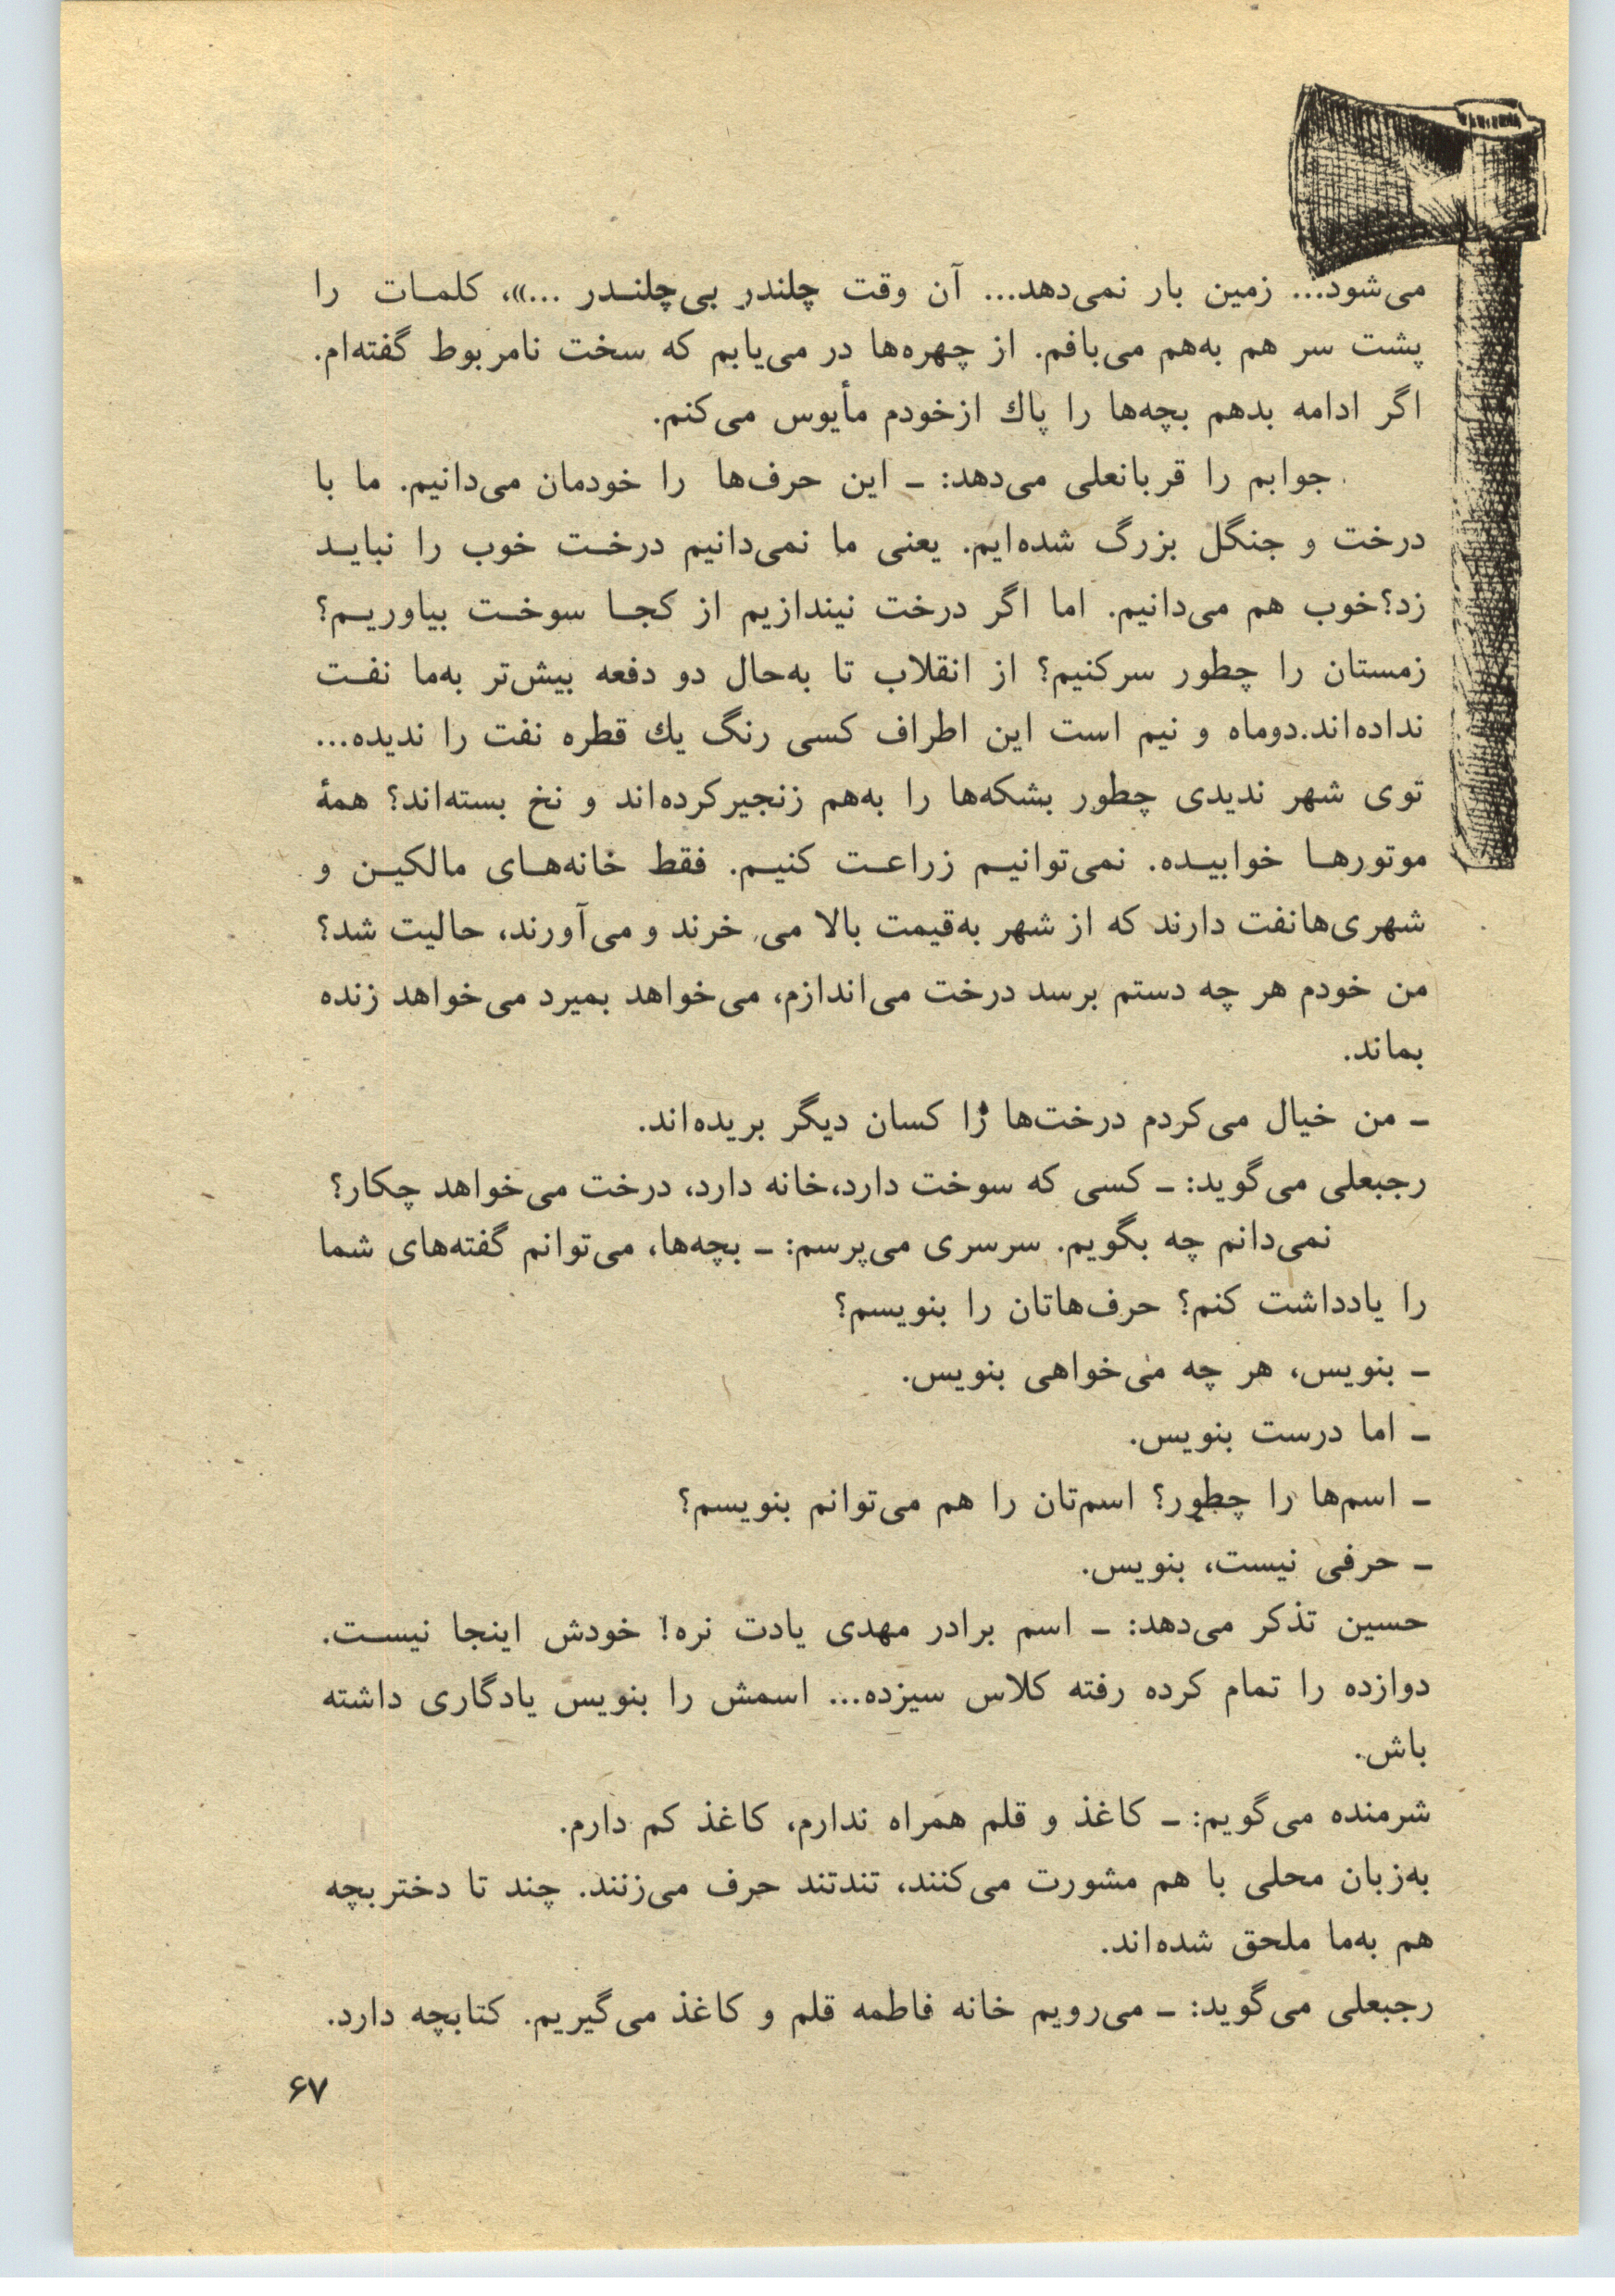 می‌شود... زمین بار نمی‌دهد... آن وقت چلندر بی‌چلندر ...»، کلمات را
پشت سر هم به‌هم می‌بافم. از چهره‌ها در می‌یابم که سخت نامربوط گفته‌ام.
اگر ادامه بدهم بچه‌ها را پاك ازخودم مأیوس می‌کنم.
جوابم را قربانعلی می‌دهد: ـ این حرف‌ها را خودمان می‌دانیم. ما با
درخت و جنگل بزرگ شده‌ایم. یعنی ما نمی‌دانیم درخت خوب را نباید
زد؟خوب هم می‌دانیم. اما اگر درخت نیندازیم از کجا سوخت بیاوریم؟
زمستان را چطور سرکنیم؟ از انقلاب تا به‌حال دو دفعه بیش‌تر به‌ما نفت
نداده‌اند.دوماه و نیم است این اطراف کسی رنگ یك قطره نفت را ندیده...
توی شهر ندیدی چطور بشکه‌ها را به‌هم زنجیرکرده‌اند و نخ بسته‌اند؟ همهٔ
موتورها خوابیده. نمی‌توانیم زراعت کنیم. فقط خانه‌های مالکین و
شهری‌هانفت دارند که از شهر به‌قیمت بالا می خرند و می‌آورند، حالیت شد؟
من خودم هر چه دستم برسد درخت می‌اندازم، می‌خواهد بمیرد می‌خواهد زنده
بماند.
ـ من خیال می‌کردم درخت‌ها را کسان دیگر بریده‌اند.
رجبعلی می‌گوید: ـ کسی که سوخت دارد،خانه دارد، درخت می‌خواهد چکار؟
نمی‌دانم چه بگویم. سرسری می‌پرسم: ـ بچه‌ها، می‌توانم گفته‌های شما
را یادداشت کنم؟ حرف‌هاتان را بنویسم؟
ـ بنویس، هر چه می‌خواهی بنویس.
ـ اما درست بنویس.
ـ اسم‌ها را چطور؟ اسم‌تان را هم می‌توانم بنویسم؟
ـ حرفی نیست، بنویس.
حسین تذکر می‌دهد: ـ اسم برادر مهدی یادت نره! خودش اینجا نیست.
دوازده را تمام کرده رفته کلاس سیزده... اسمش را بنویس یادگاری داشته
باش.
شرمنده می‌گویم: ـ کاغذ و قلم همراه ندارم، کاغذ کم دارم.
به‌زبان محلی با هم مشورت می‌کنند، تندتند حرف می‌زنند. چند تا دختربچه
هم به‌ما ملحق شده‌اند.
رجبعلی می‌گوید: ـ می‌رویم خانه فاطمه قلم و کاغذ می‌گیریم. کتابچه دارد.
۶۷